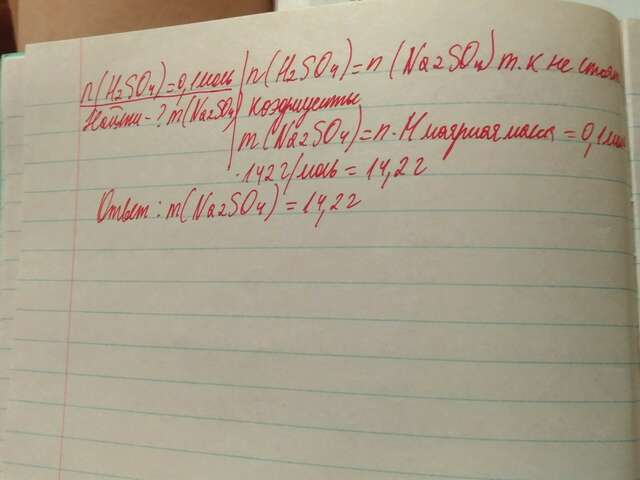 n(H2SO4)=0,1моль
Найти-? m(Na2SO4)
n(H2SO4)=n(Na2SO4) т.к не стоят
коэфиценты
m(Na2SO4)=n·M молярная масса = 0,1моль
·142г/моль = 14,2г
Ответ: m(Na2SO4)=14,2г